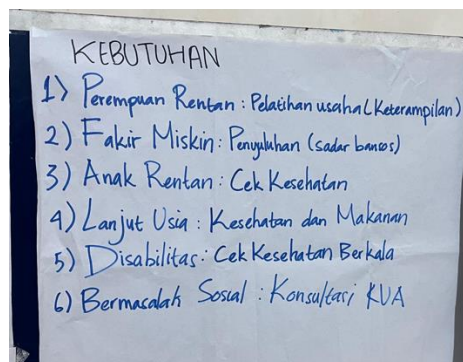 KEBUTUHAN
1) Perempuan Rentan : Pelatihan usaha (Keterampilan)
2) Fakir Miskin : Penyuluhan (sadar bansos)
3) Anak Rentan : Cek Kesehatan
4) Lanjut Usia : Kesehatan dan Makanan
5) Disabilitas : Cek Kesehatan Berkala
6) Bermasalah Sosial : Konsultasi KUA